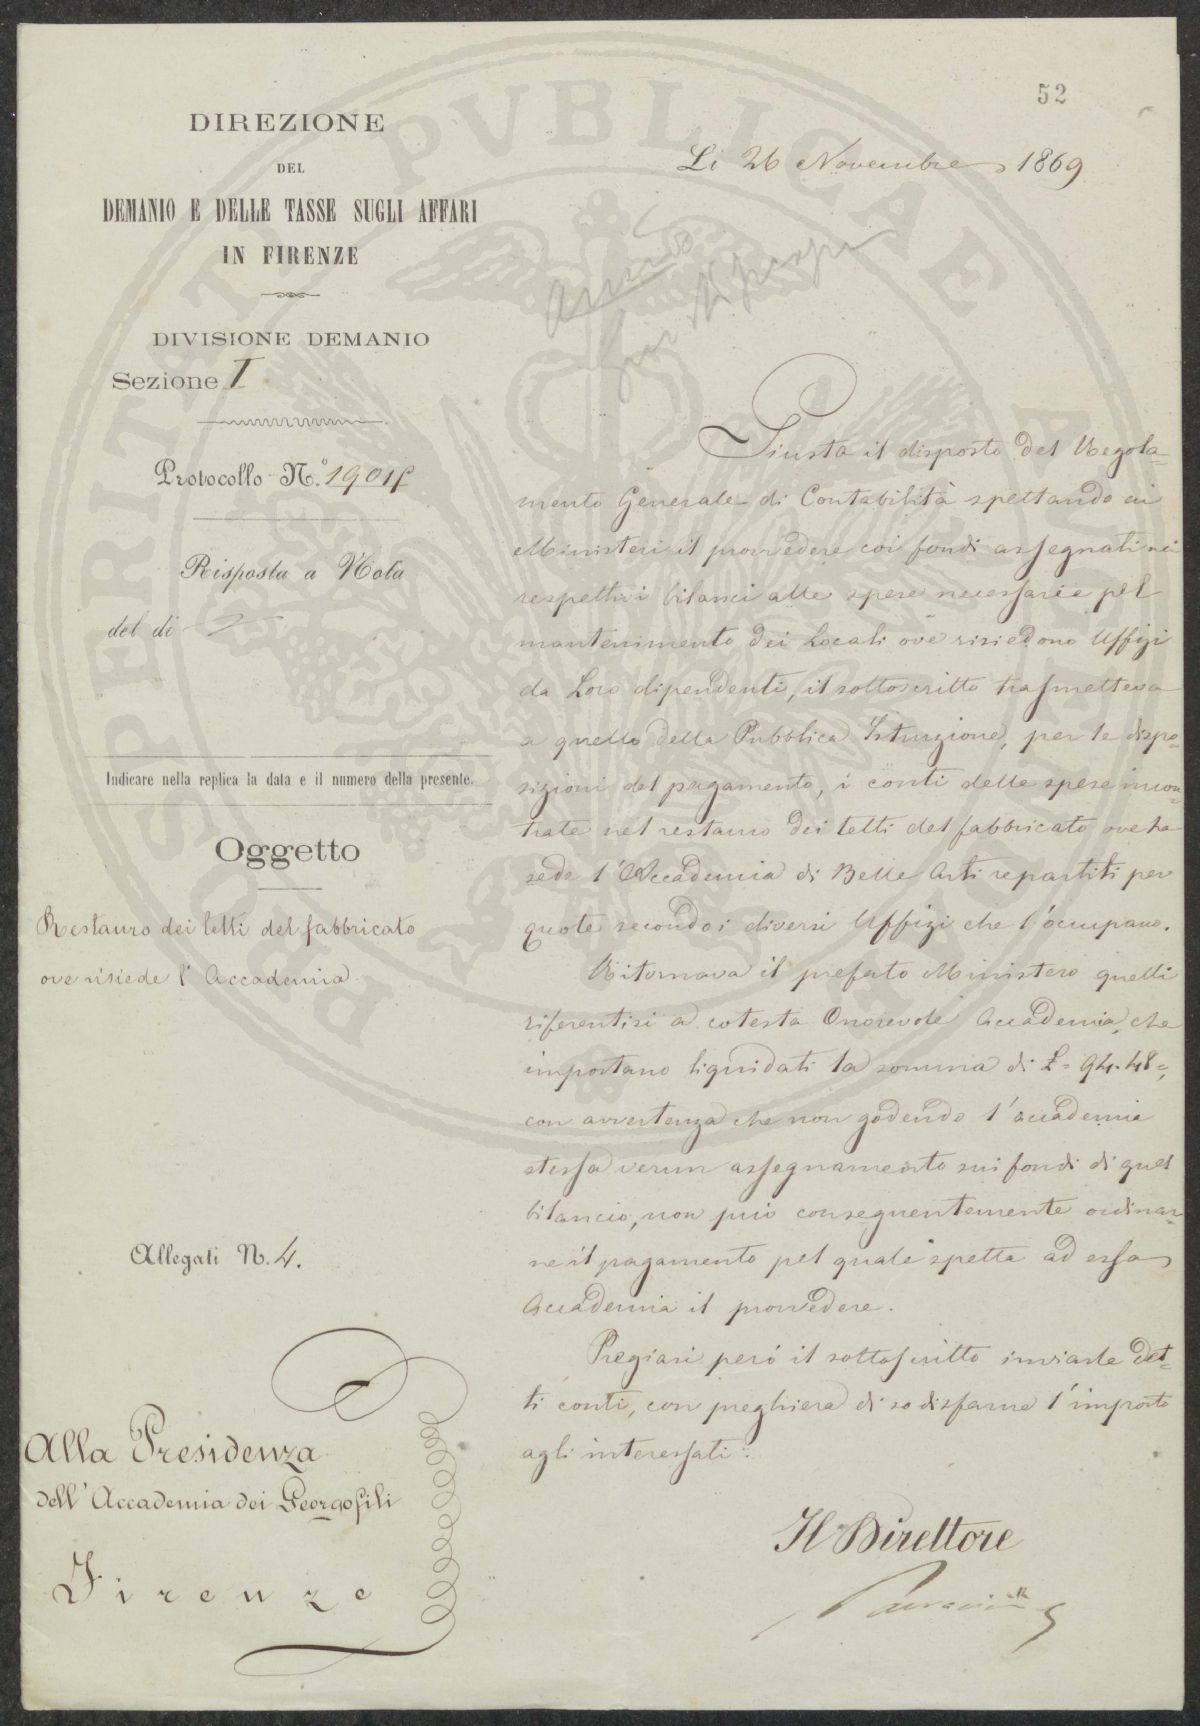 52
DIREZIONE
DEL
DEMANIO E DELLE TASSE SUGLI AFFARI
IN FIRENZE
DIVISIONE DEMANIO
Sezione I
Protocollo N.º
Risposta a Nota
del dì
Indicare nella replica la data e il numero della presente.
Oggetto
Restauro dei tetti del fabbricato
ove risiede l'Accademia.
Allegati N. 4.
Alla Presidenza
dell'Accademia dei Georgofili
Firenze
Li 26 Novembre 1869
Giusta il disposto del Regola=
mento Generale di Contabilità spettando ai
Ministeri il provvedere coi fondi assegnati nei
respettivi bilanci alle spese necessarie pel
mantenimento dei Locali ove risiedono Uffizi
da Loro dipendenti, il sottoscritto trasmetteva
a quello della Pubblica Istruzione, per le dispo=
sizioni del pagamento, i conti delle spese incon=
trate nel restauro dei tetti del fabbricato ove ha
sede l'Accademia di Belle Arti repartiti per
quote secondo i diversi Uffizi che l'ocupano.
Ritornava il prefato Ministero quelli
riferentisi a cotesta Onorevole Accademia, che
importano liquidati la somma di £= 94.48=,
con avvertenza che non godendo l'accademia
stessa verun assegnamento sui fondi di quel
bilancio, non può conseguentemente ordinar=
ne il pagamento pel quale spetta ad essa
Accademia il provvedere.
Pregiasi però il sottoscritto inviarle det=
ti conti, con preghiera di sodisfarne l'importo
agli interessati.
Il Direttore
PROSPERITATI PVBLICAE AVGENDAE